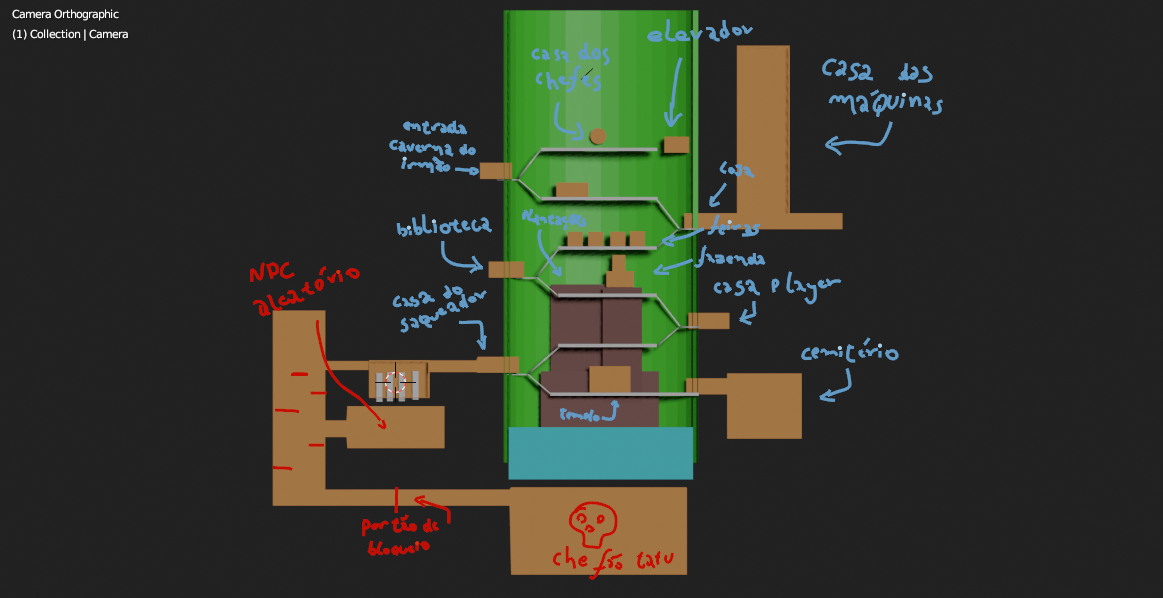 Camera Orthographic
(1) Collection | Camera
elevador
casa dos
chefes
casa das
máquinas
entrada
caverna do
irmão
casa
biblioteca
feiras
fazenda
NPC
aleatório
casa do
saqueador
casa player
cemitério
templo
portão de
bloqueio
chefão tatu